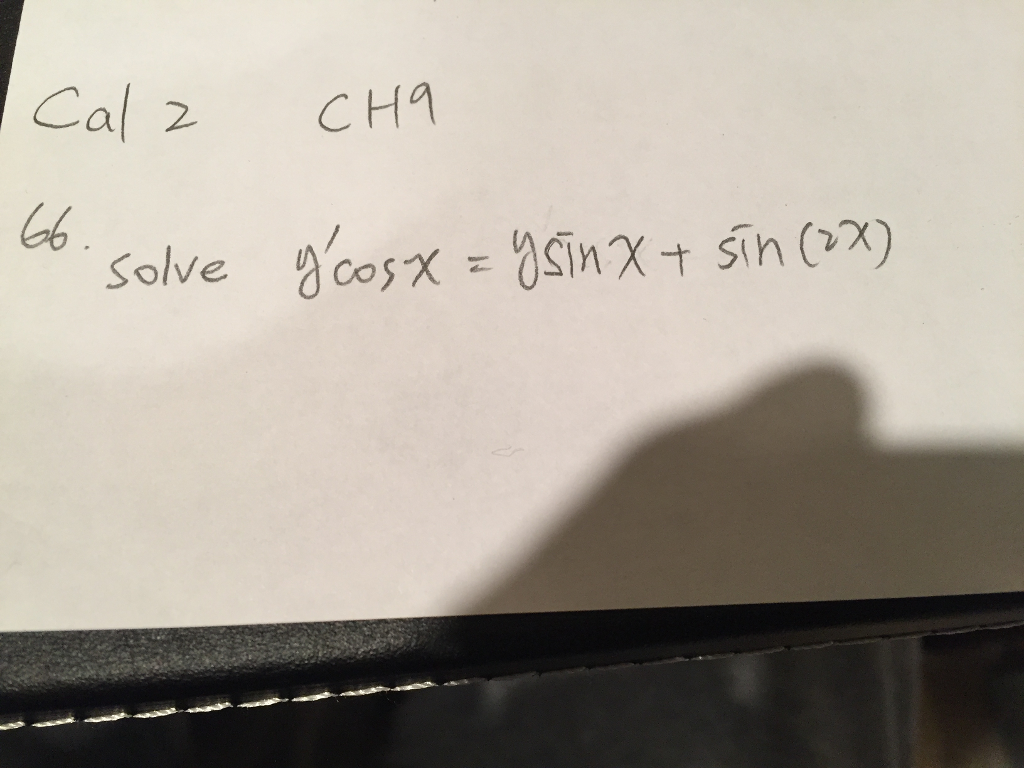 Cal 2 CH9
66. solve y'cosx = ysinx + sin(2x)